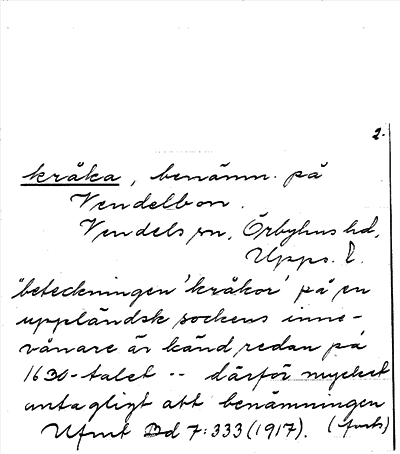 2.
kråka, benämn. på
Vendelbon.
Vendels sn, Örbyhus hd,
Upps. l.
"beteckningen 'kråkor' på en
uppländsk sockens inne-
vånare är känd redan på
1630-talet -- därför mycket
antagligt att benämningen
Ufmt Bd 7:333 (1917). (forts)